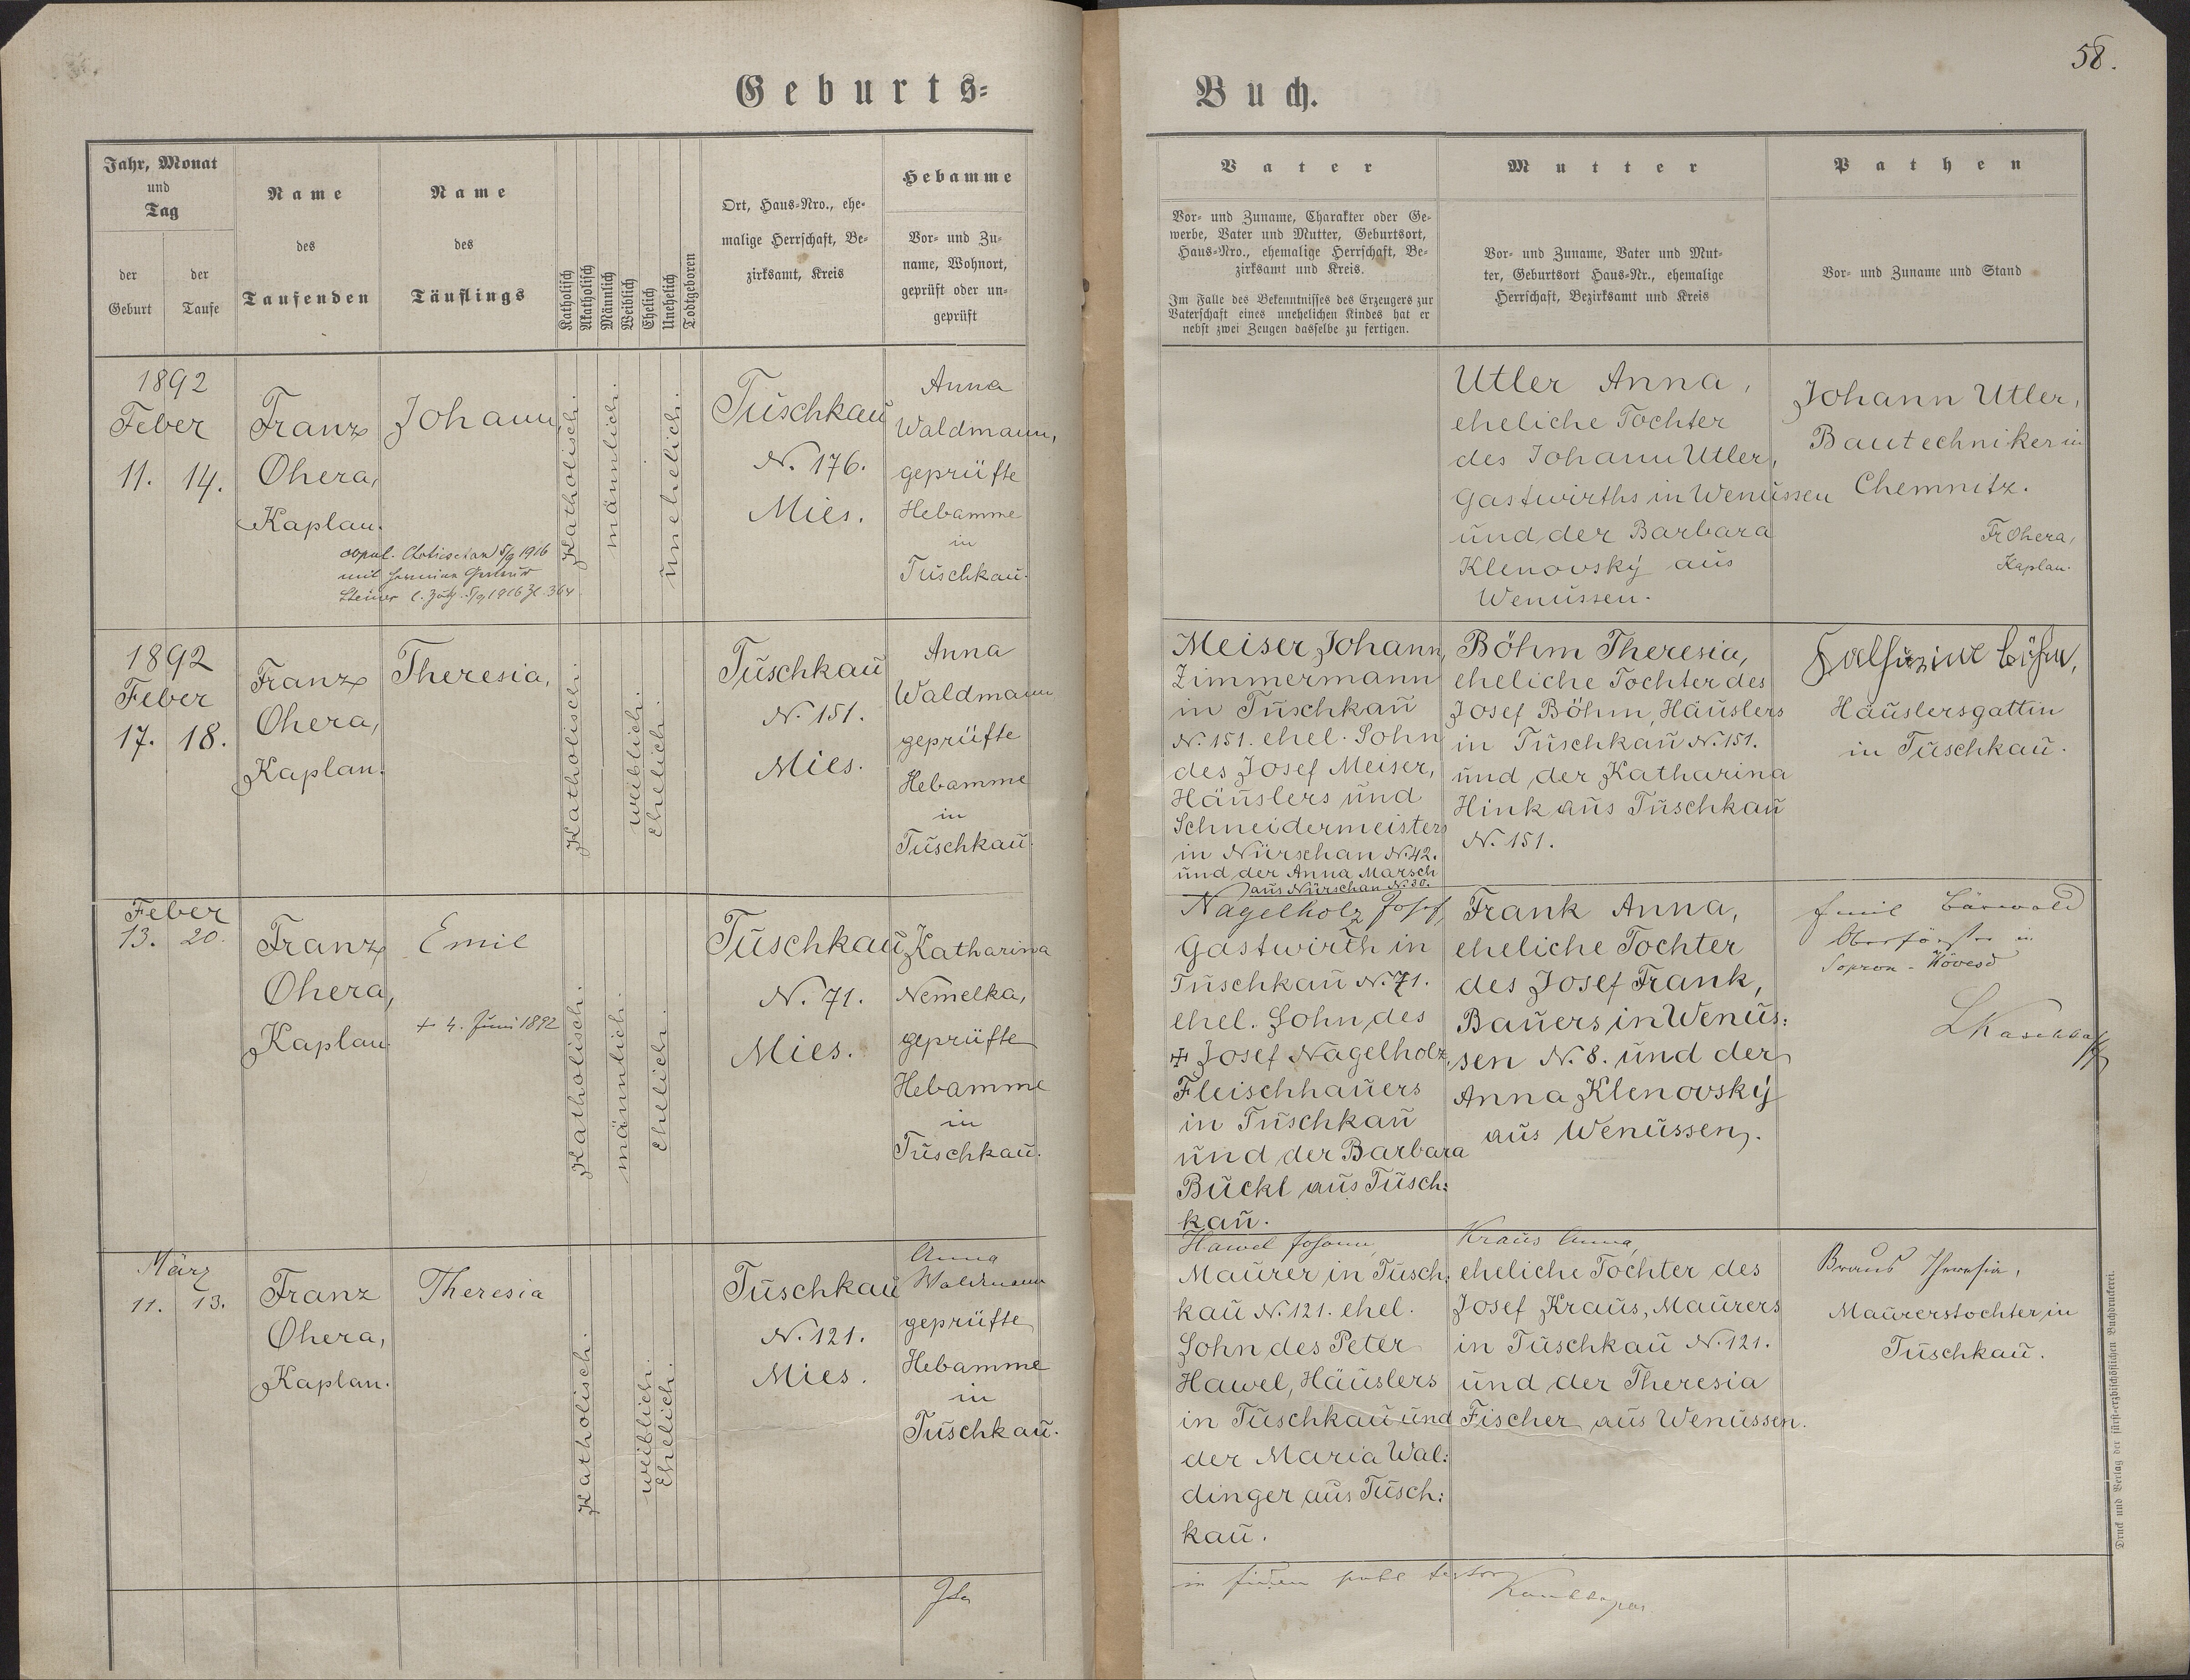 58.
Geburts=
Buch.
Jahr, Monat
und
Tag
der
Geburt
der
Taufe
Name
des
Taufenden
Name
des
Täuflings
Katholisch
Akatholisch
Männlich
Weiblich
Ehelich
Unehelich
Todtgeboren
Ort, Haus=Nro., ehe=
malige Herrschaft, Be=
zirksamt, Kreis
Hebamme
Vor= und Zu=
name, Wohnort,
geprüft oder un=
geprüft
Vater
Vor= und Zuname, Charakter oder Ge=
werbe, Vater und Mutter, Geburtsort,
Haus=Nro., ehemalige Herrschaft, Be=
zirksamt und Kreis.
Im Falle des Bekenntnisses des Erzeugers zur
Vaterschaft eines unehelichen Kindes hat er
nebst zwei Zeugen dasselbe zu fertigen.
Mutter
Vor= und Zuname, Vater und Mut=
ter, Geburtsort Haus=Nr., ehemalige
Herrschaft, Bezirksamt und Kreis
Pathen
Vor= und Zuname und Stand
1892
Feber
11. 14.
Franz
Ohera,
Kaplan.
Johann,
copul. Chotieschau 5/9 1916
mit
Steiner 5/9 1916 Zl. 364
Katholisch.
männlich.
unehelich.
Tuschkau
N. 176.
Mies.
Anna
Waldmann,
geprüfte
Hebamme
in
Tuschkau.
Utler Anna,
eheliche Tochter
des Johann Utler,
Gastwirths in Wenussen
und der Barbara
Klenovský aus
Wenussen.
Johann Utler,
Bautechniker in
Chemnitz.
Fr Ohera,
Kaplan.
1892
Feber
17. 18.
Franz
Ohera,
Kaplan.
Theresia,
Katholisch.
weiblich.
Ehelich.
Tuschkau
N. 151.
Mies.
Anna
Waldmann
geprüfte
Hebamme
in
Tuschkau.
Meiser Johann,
Zimmermann
in Tuschkau
N. 151. ehel. Sohn
des Josef Meiser,
Häuslers und
Schneidermeisters
in Nürschan N. 42.
und der Anna Marsch
aus Nürschan N. 30.
Böhm Theresia,
eheliche Tochter des
Josef Böhm, Häuslers
in Tuschkau N. 151.
und der Katharina
Hink aus Tuschkau
N. 151.
Böhm,
Häuslersgattin
in Tuschkau.
Feber
13. 20.
Franz
Ohera,
Kaplan.
Emil
+ 4. Juni 1892
Katholisch.
männlich.
Ehelich.
Tuschkau
N. 71.
Mies.
Katharina
Nemelka,
geprüfte
Hebamme
in
Tuschkau.
Nagelholz Josef,
Gastwirth in
Tuschkau N. 71.
ehel. Sohn des
+ Josef Nagelholz,
Fleischhauers
in Tuschkau
und der Barbara
Buckl aus Tusch:
kau.
Frank Anna,
eheliche Tochter
des Josef Frank,
Bauers in Wenus:
sen N. 8. und der
Anna Klenovský
aus Wenussen.
Emil Bärwald
Oberförster in
Sopron - Hövesd
März
11. 13.
Franz
Ohera,
Kaplan.
Theresia
Katholisch.
weiblich.
Ehelich.
Tuschkau
N. 121.
Mies.
Anna
Waldmann
geprüfte
Hebamme
in
Tuschkau.
Hawel Johann,
Maurer in Tusch:
kau N. 121. ehel.
Sohn des Peter
Hawel, Häuslers
in Tuschkau und
der Maria Wal:
dinger aus Tusch:
kau.
Kraus Anna,
eheliche Tochter des
Josef Kraus, Maurers
in Tuschkau N. 121.
und der Theresia
Fischer aus Wenussen.
Kraus Theresia,
Maurerstochter in
Tuschkau.
Druck und Verlag der fürst=erzbischöflichen Buchdruckerei.